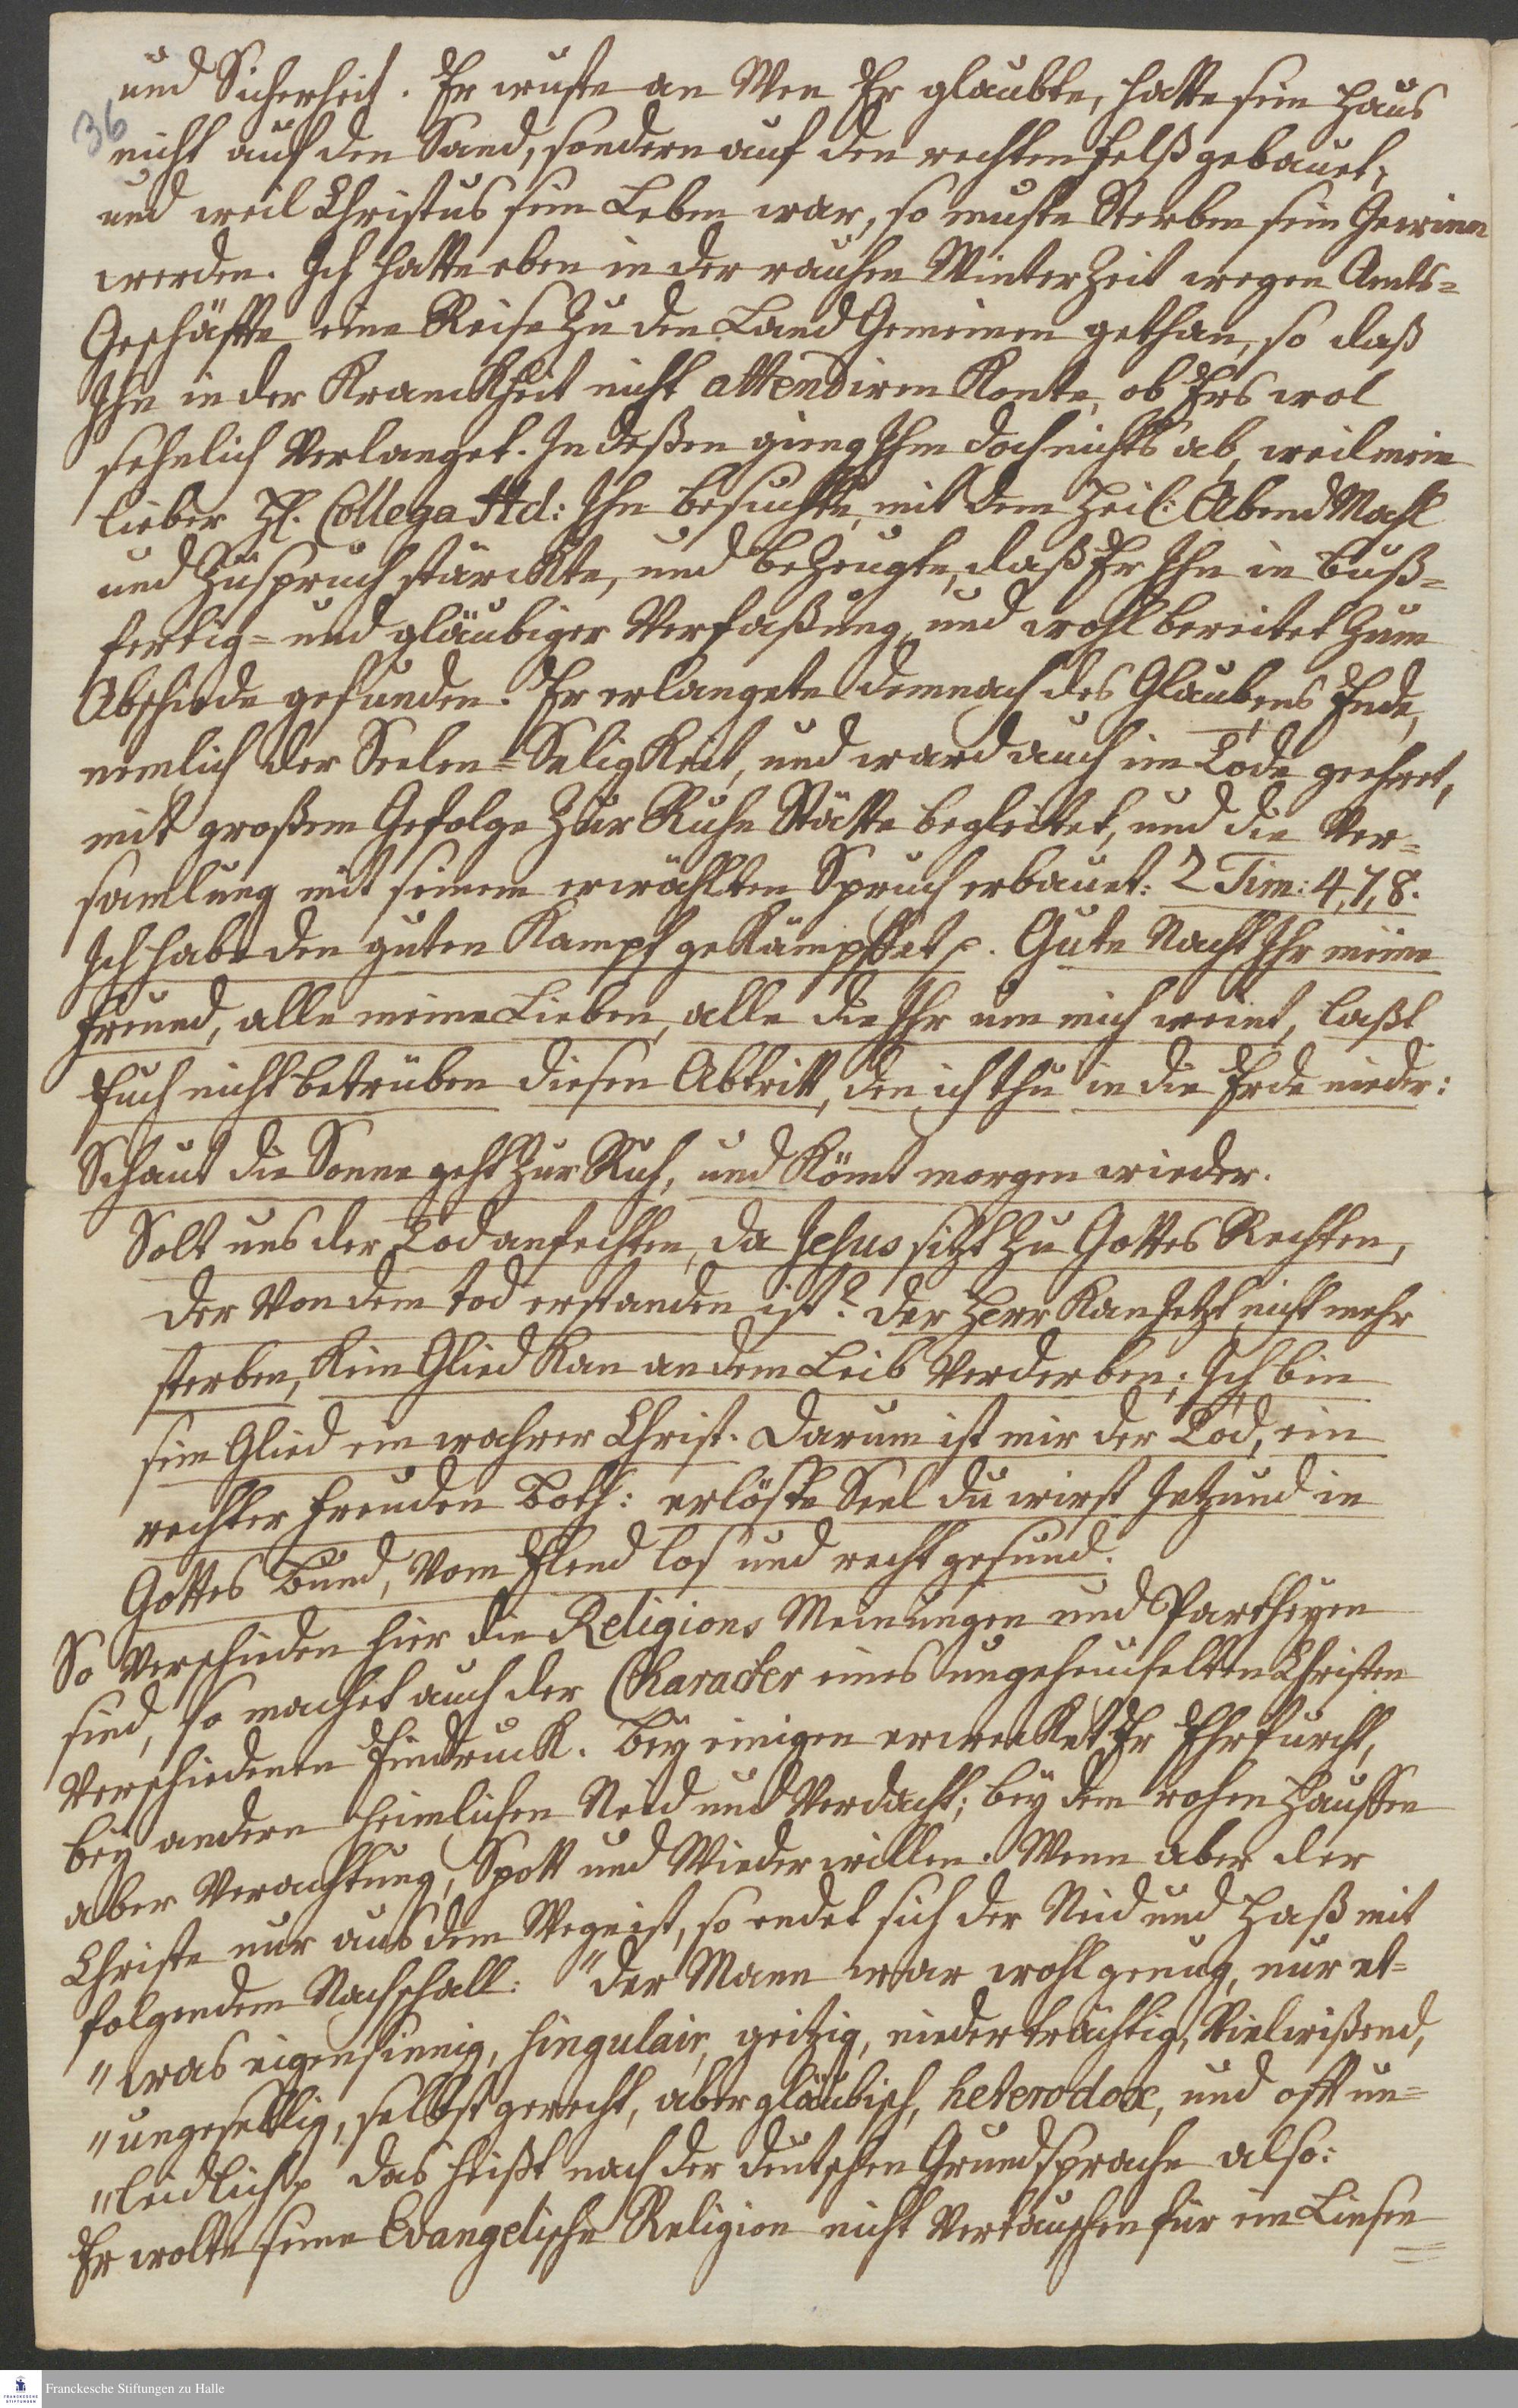 und Sicherheit. Er wuste an Wen Er glaubte, hatte sein Haus
36
nicht auf den Sand, sondern auf den rechten Felß gebauet,
und weil Christus sein Leben war, so muste Sterben sein Gewinn
werden. Ich hatte eben in der rauhen Winter Zeit wegen Amts=
Geschäfte eine Reise zu den Land Gemeinen gethan, so daß
Ihn in der Kranckheit nicht attendiren Konte, ob Ers wol
sehnlich Verlanget. Indeßen gieng Ihm doch nichts ab, weil mein
lieber H. Collega Hd: Ihn besuchte, mit dem Heil: Abend Mahl
und Zuspruch stärckte, und bezeugte, daß Er Ihn in buß=
fertig= und gläubiger Verfaßung, und wohl bereitet zum
Abschiede gefunden. Er erlangete demnach des Glaubens Ende,
nemlich der Seelen=Seligkeit, und ward auch im Tode geehret,
mit großem Gefolge zur Ruhe Stätte begleitet, und die Ver=
samlung mit seinem erwählten Spruch erbauet: 2 Tim: 4, 7, 8.
Ich habe den guten Kampf gekämpffet p. Gute Nacht Ihr meine
Freund, alle meine Lieben, alle die Ihr um mich weint, laßt
Euch nicht betrüben diesen Abtritt, den ich thu in die Erde nieder:
Schaut die Sonne geht zur Ruh, und Kömt morgen wieder.
Solt uns der Tod anfechten, da Jesus sitzt zu Gottes Rechten,
der Von dem Tod erstanden ist? der Herr Kan Jetzt nicht mehr
sterben, Kein Glied Kan an dem Leib Verderben; Ich bin
sein Glied ein wahrer Christ. Darum ist mir der Tod, ein
rechter Freuden Both: erlößte Seel du wirst Jetzund in
Gottes Bund, Vom Elend los und recht gesund.
So Verschieden hier die Religions Meinungen und Partheyen
sind, so machet auch der Character eines ungeheuchelten Christen
Verschiedenen Eindruck. Bey einigen erwecket Er Ehrfurcht,
bey andern heimlichen Neid und Verdacht; bey dem rohen Hauffen
aber Verachtung, Spott und Wiederwillen. Wenn aber der
Christe nur aus dem Wege ist, so endet sich der Neid und Haß mit
folgendem Nachschall: "der Mann war wohl genug, nur et=
"was eigensinnig, singulair, geitzig, niederträchtig, Vielwißend,
"ungesellig, selbst gerecht, abergläubisch, heterodox, und oft un=
"leidlich p das heißt nach der deutschen Grundsprache also:
Er wolte seine Evangelische Religion nicht Vertauschen für ein Linsen
Franckesche Stiftungen zu Halle